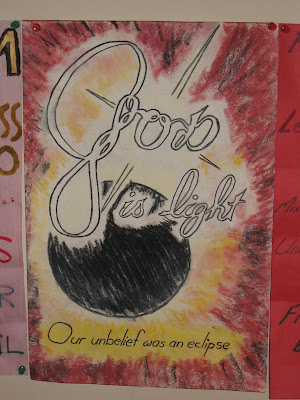 God
is light
Our unbelief was an eclipse